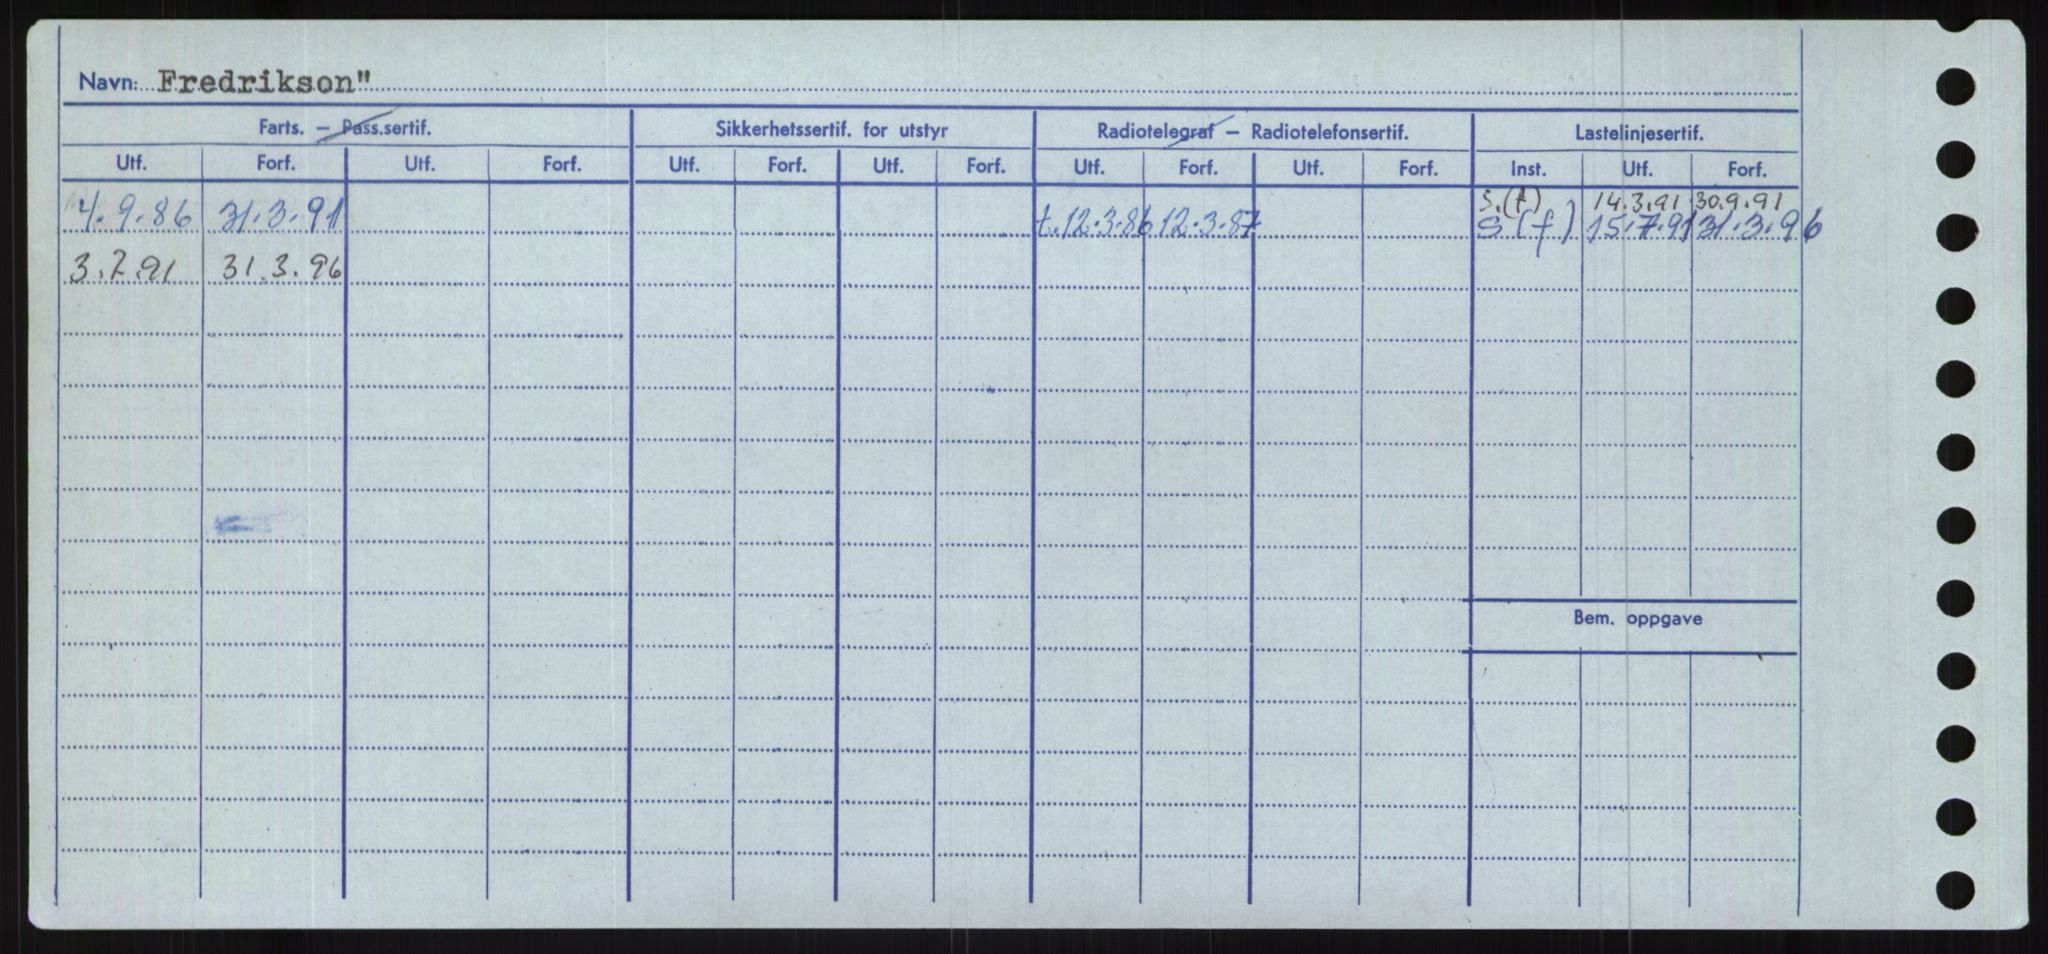 Navn: Fredrikson"
Farts. — Pass.sertif. Sikkerhetssertif. for utstyr Radiotelegraf — Radiotelefonsertif. Lastelinjesertif.
Utf. Forf. Utf. Forf. Utf. Forf. Utf. Forf. Utf. Forf. Utf. Forf. Inst. Utf. Forf.
S.(f) 14.3.91 30.9.91
4.9.86 31.3.91 t.12.3.86 12.3.87 S(f) 15.7.91 31.3.96
3.7.91 31.3.96
Bem. oppgave